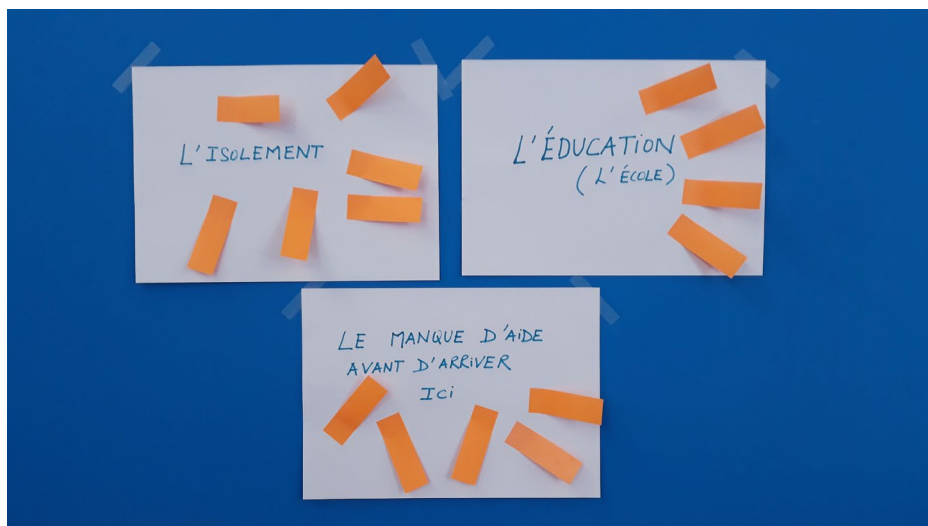 L'ISOLEMENT
L'ÉDUCATION
(L'ÉCOLE)
LE MANQUE D'AIDE
AVANT D'ARRIVER
ICI